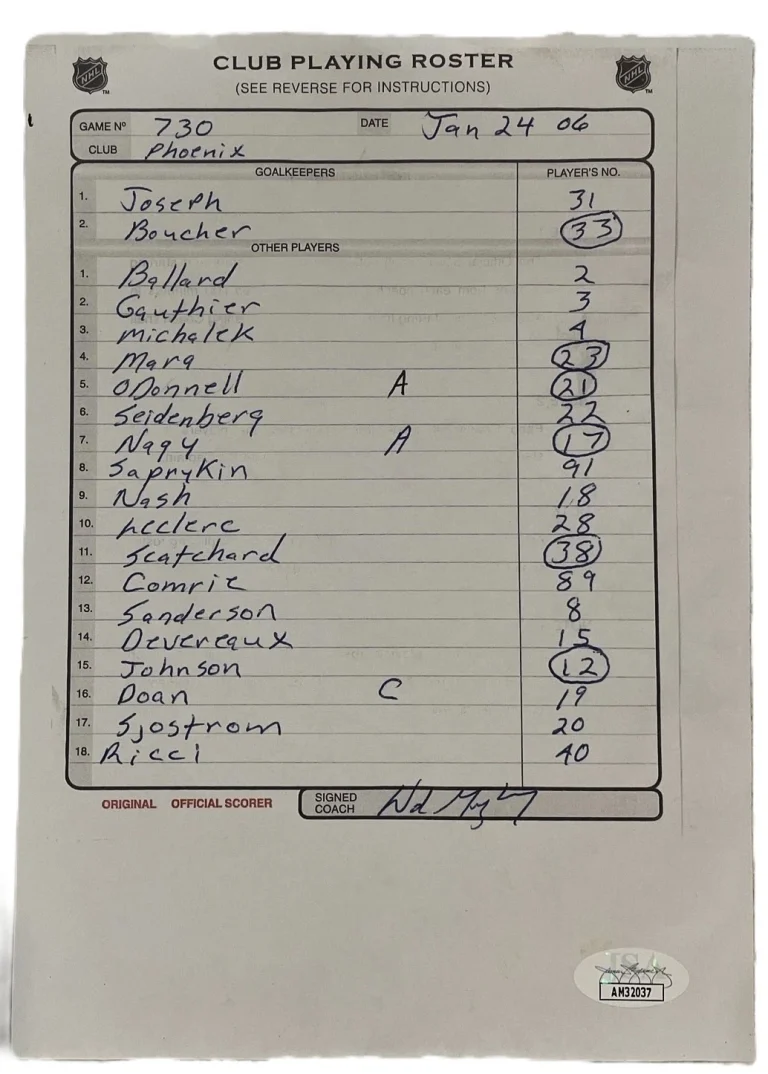 CLUB PLAYING ROSTER
(SEE REVERSE FOR INSTRUCTIONS)
NHL
NHL
GAME Nº 730 DATE Jan 24 06
CLUB Phoenix
GOALKEEPERS PLAYER'S NO.
1. Joseph 31
2. Boucher 33
OTHER PLAYERS
1. Ballard 2
2. Gauthier 3
3. Michalek 4
4. Mara 23
5. ODonnell A 21
6. Seidenberg 22
7. Nagy A 17
8. Saprykin 91
9. Nash 18
10. Leclerc 28
11. Scatchard 38
12. Comrie 89
13. Sanderson 8
14. Devereaux 15
15. Johnson 12
16. Doan C 19
17. Sjostrom 20
18. Ricci 40
ORIGINAL OFFICIAL SCORER
SIGNED COACH
JSA
AM32037